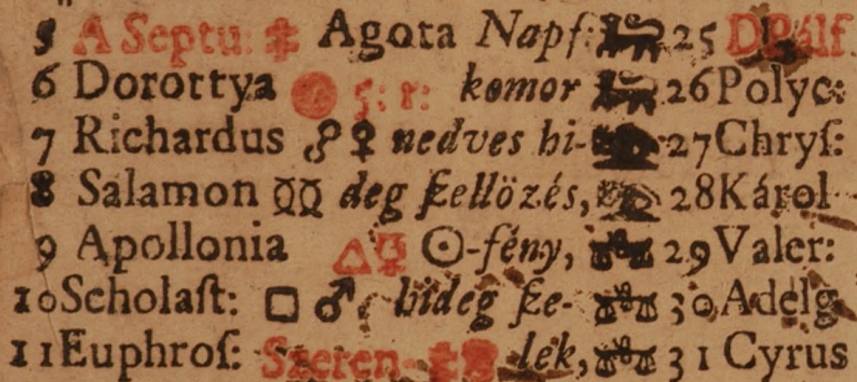 5 A Septu: Agota Napſ: 25 D Pálf
6 Dorottya 5: r: komor 26 Polyc:
7 Richardus ☍ ♀ nedves hi- 27 Chryſ:
8 Salamon deg ſzellözés, 28 Károl
9 Apollonia △ ☿ ☉-fény, 29 Valer:
10 Scholaſt: □ ♂ hideg ſze- 30 Adelg
11 Euphroſ: Szeren lek, 31 Cyrus